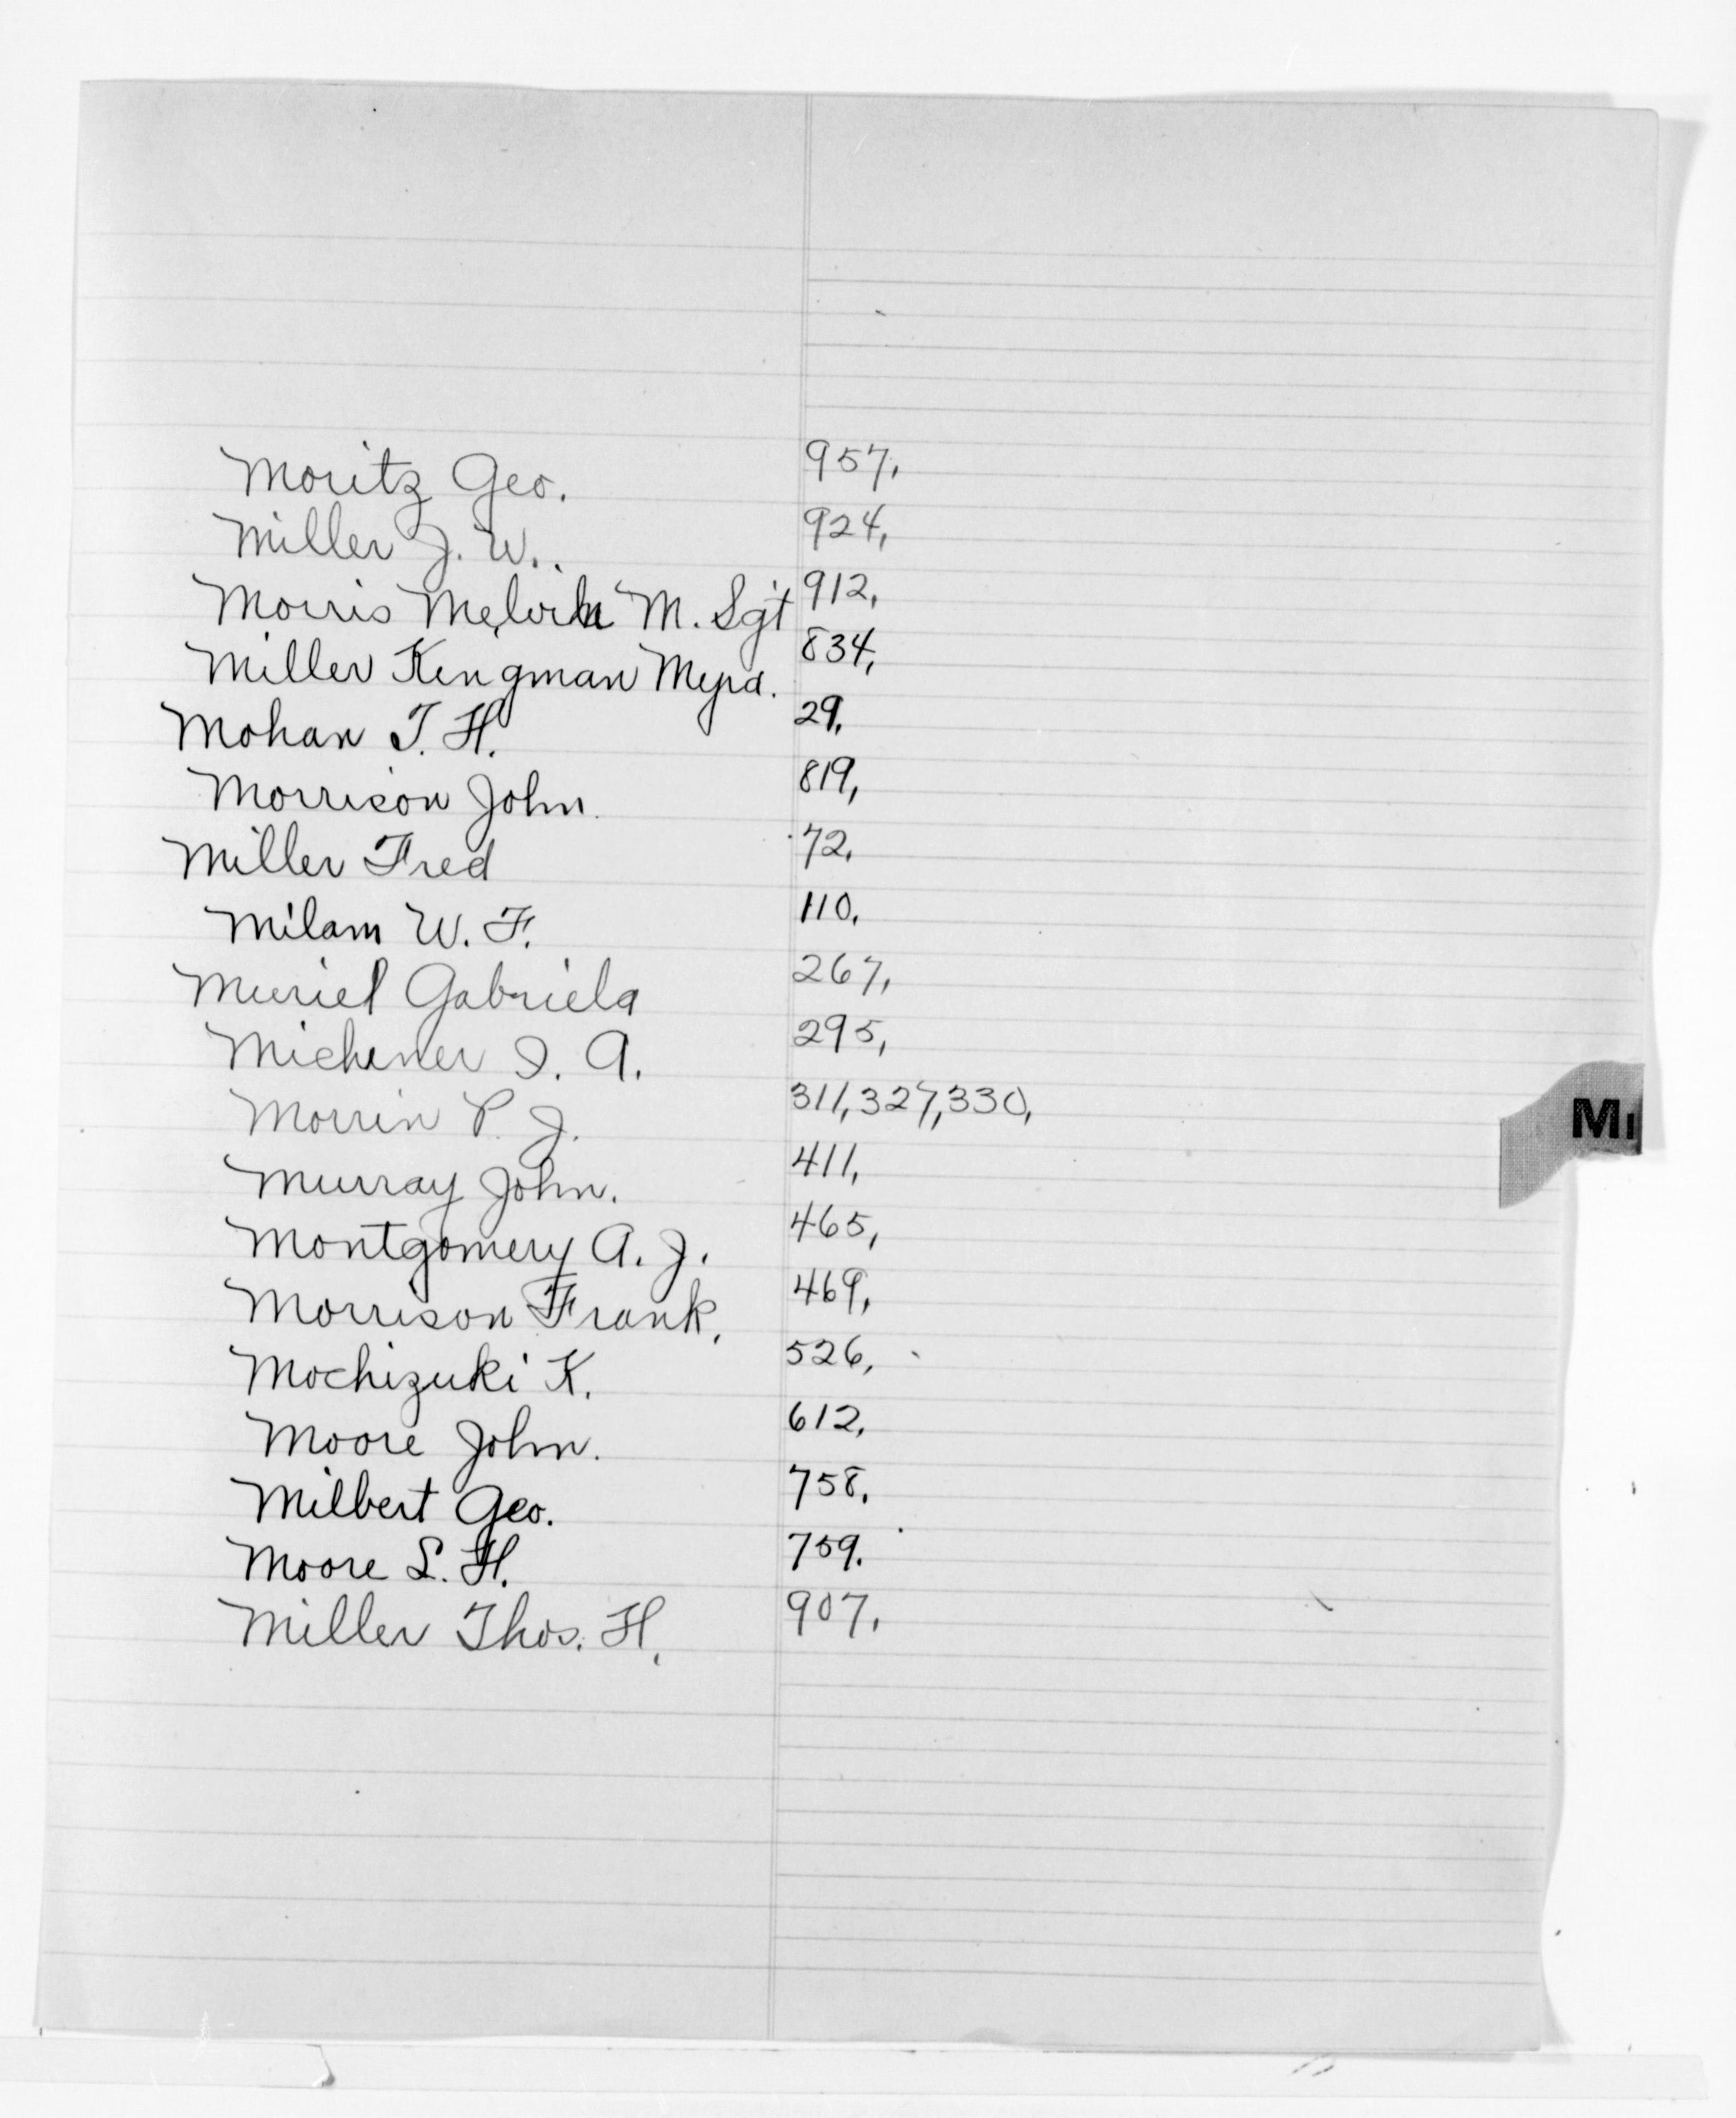 Moritz Geo. 957,
Miller J. W.. 924,
Morris Melvin M. Sgt 912,
Miller Kingman Myra. 834,
Mohan T. H. 29,
Morrison John. 819,
Miller Fred 72,
Milam W. F. 110,
Muriel Gabriela 267,
Michener I. A. 295,
Morrin P. J. 311, 327, 330,
Mi
Murray John. 411,
Montgomery A. J. 465,
Morrison Frank, 469,
Mochizuki K. 526,
Moore John. 612,
Milbert Geo. 758,
Moore L. H. 759.
Miller Thos. H, 907,